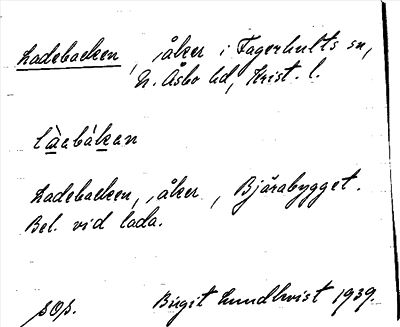 Ladebacken, åker i Fagerhults sn,
N. Åsbo hd, Krist. l.
làabákan
Ladebacken, åker, Bjärabygget.
Bel. vid lada.
sOs. Birgit Lundkvist 1939.